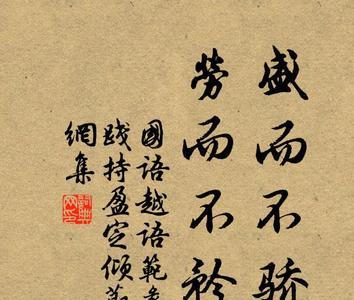 盛而不骄
劳而不矜
國语越语範
践持盈定倾
網集